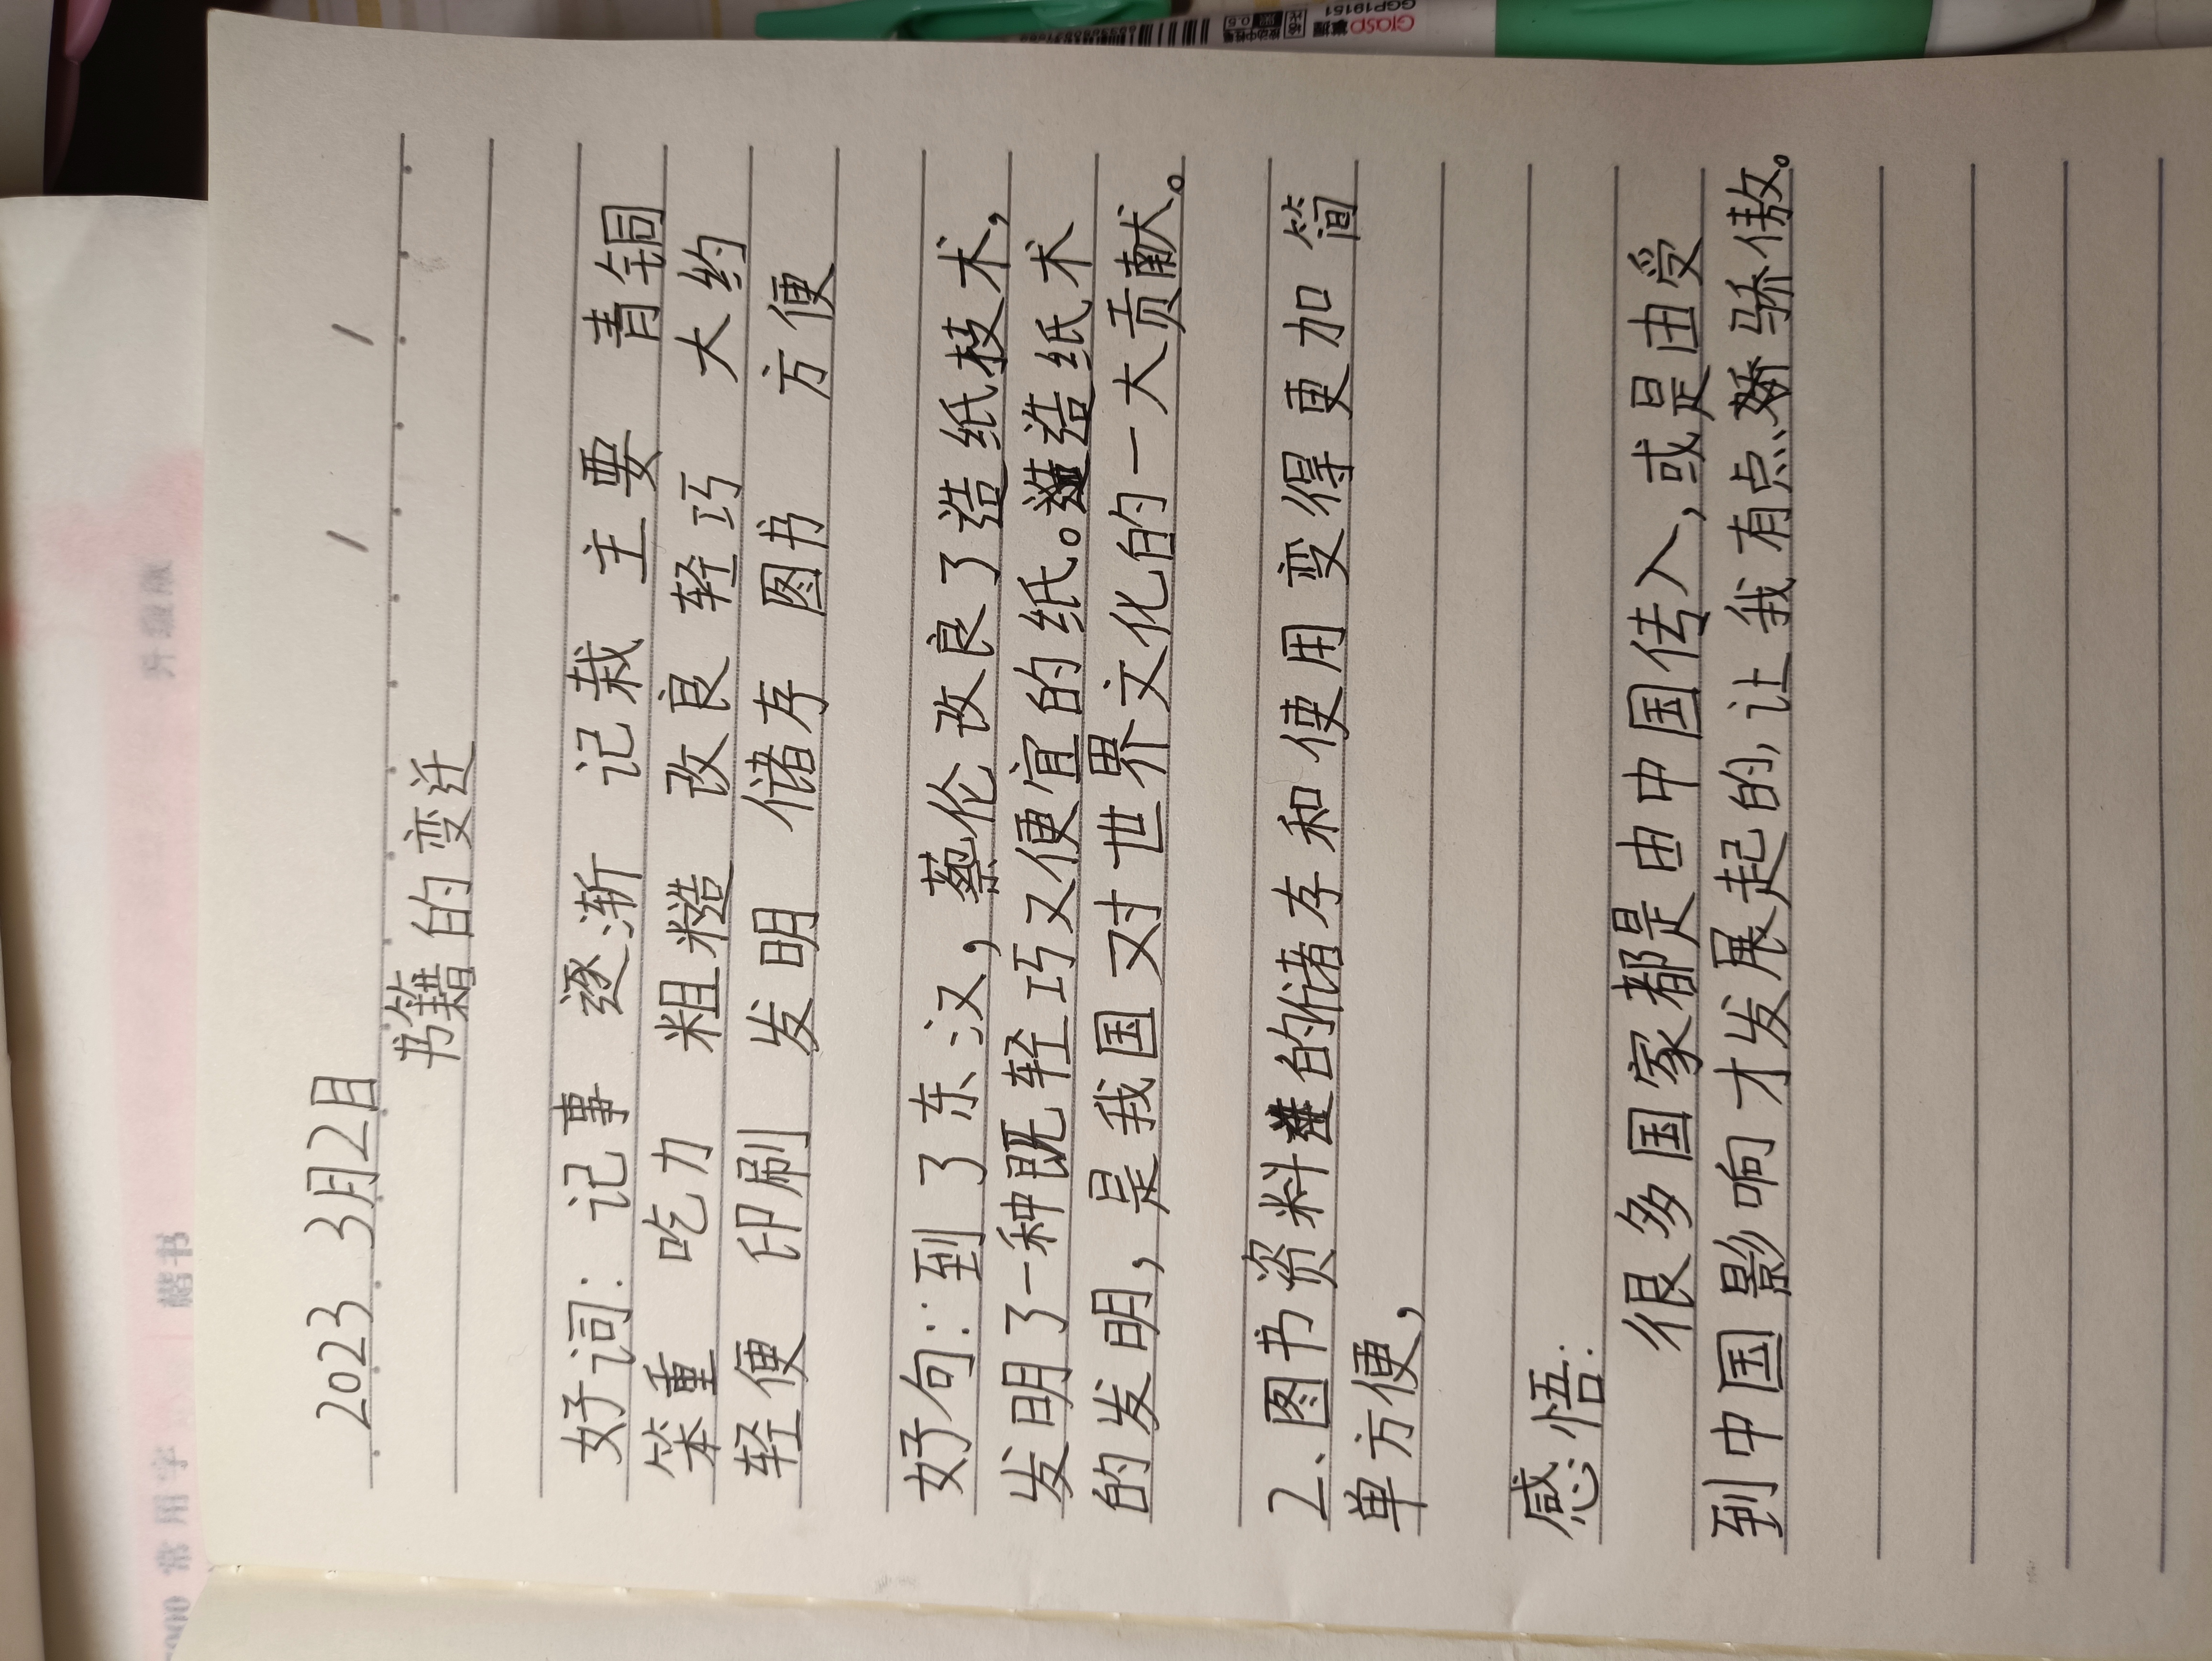 2023 3月2日
书籍的变迁
好词：记事 逐渐 记栽 主要 青铜
笨重 吃力 粗糙 改良 轻巧 大约
轻便 印刷 发明 储存 图书 方便
好句：：到了东汉，蔡伦改良了造纸枝术，
发明了一种既轻巧又便宜的纸。造纸术
的发明，是我国对世界文化的一大贡献。
2、图书资料的储存和使用变得更加简
单方便，
感悟：
很多国家都是由中国传入，或是由受
到中国影响才发展起的，让我有点骄傲。
Grasp
GGP19151
0.5
常用字
楷书
升级版